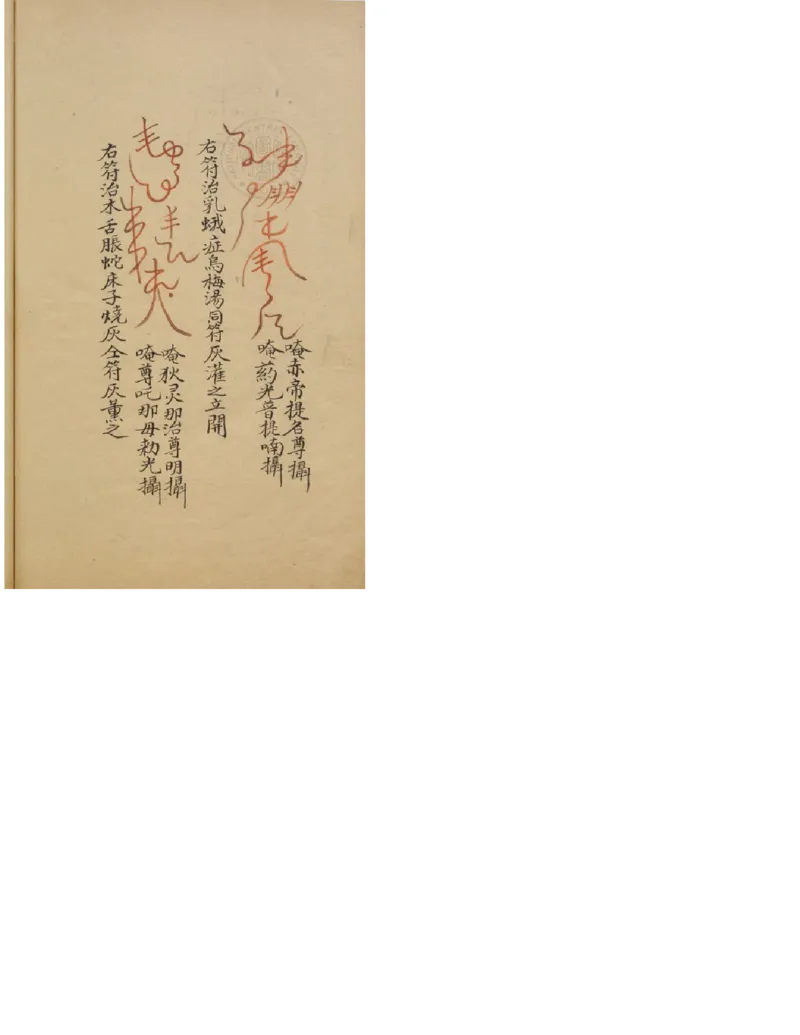 唵赤帝提名尊攝
唵药光普提喃攝
右符治乳蛾症烏梅湯同符灰灌之立開
唵狄灵那治尊明攝
唵尊吒那毋勑光攝
右符治木舌脹蛇床子燒灰仝符灰薰之